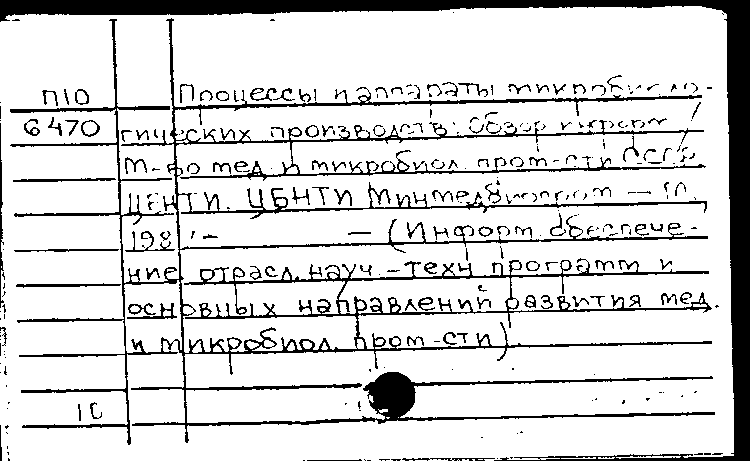 П10 Процессы и аппараты микробиоло-
6470 гических производств: Обзор. информ
М-во мед. и микробиол. пром-сти СССР.
ЦБНТИ. ЦБНТИ Минмедбиопром — М.,
198 - — (Информ. обеспече-
ние отрасл. науч.-техн программ и
основных направлений развития мед.
и микробиол. пром-сти).
10